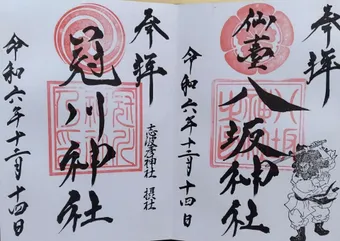 奉拝
仙臺
八坂神社
令和六年十二月十四日
奉拝
冠川神社
志波彦神社 摂社
令和六年十二月十四日